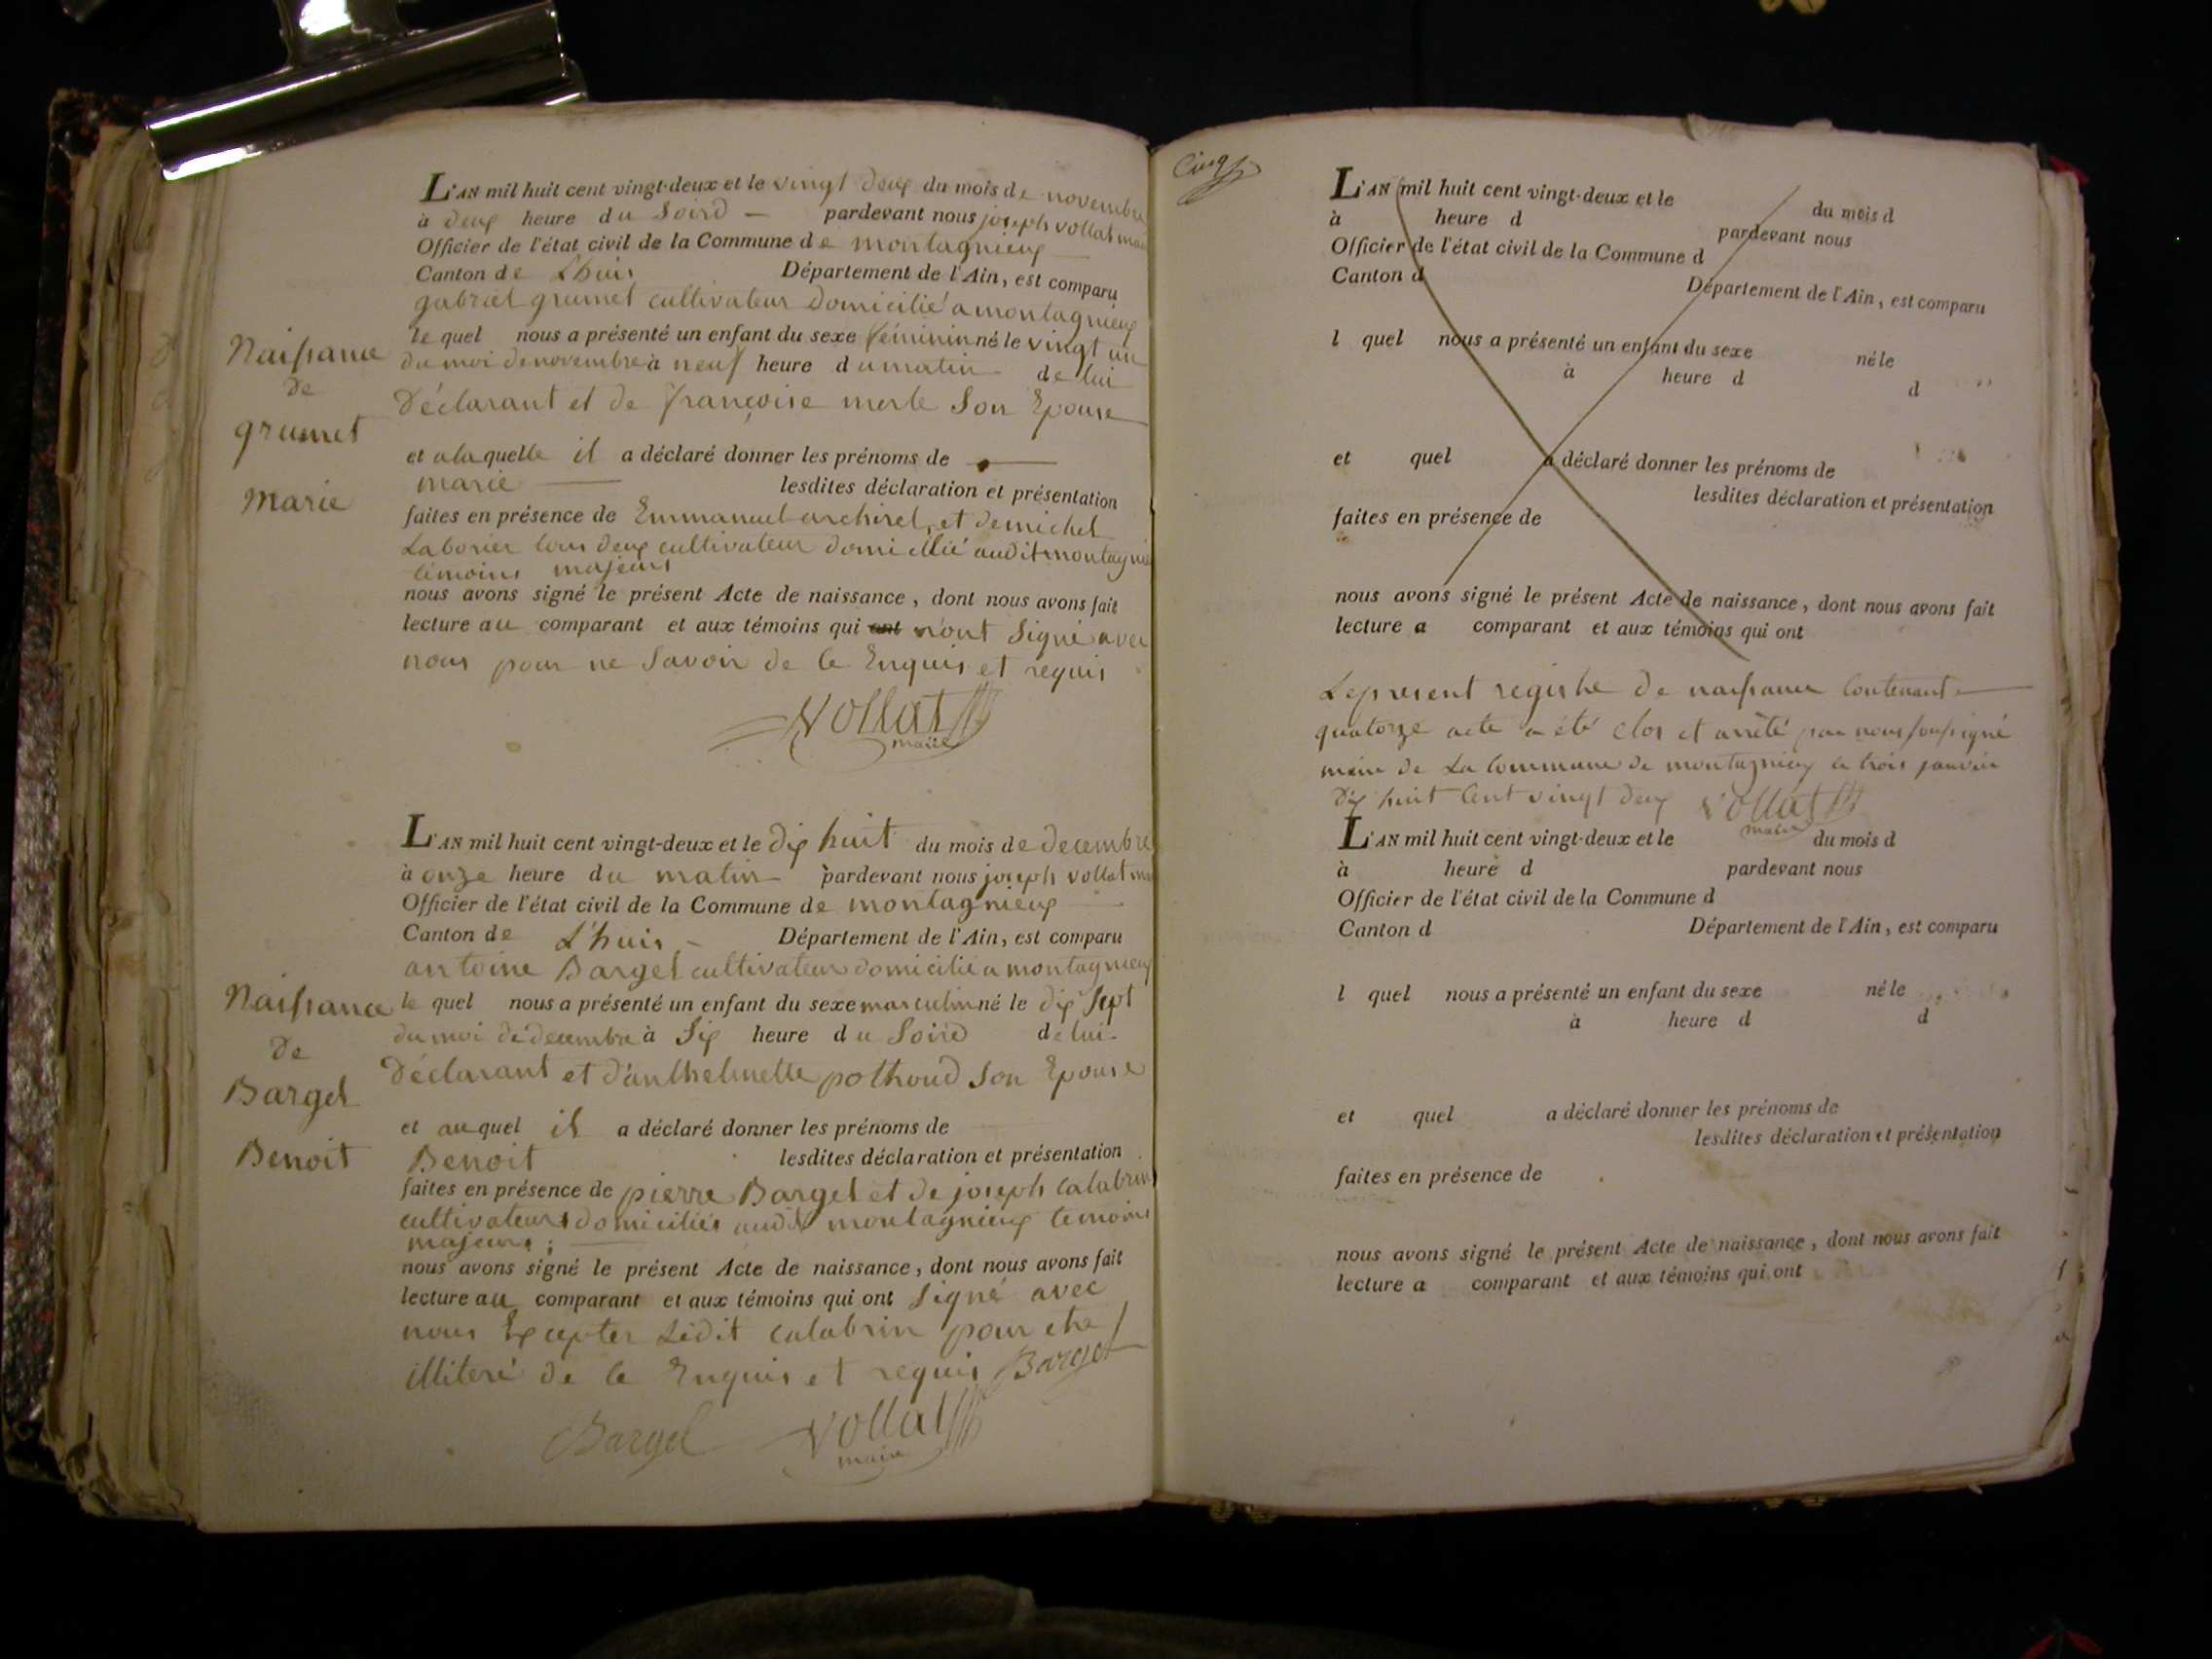 L'AN mil huit cent vingt-deux et le vingt deux du mois de novembre
à deux heure du Soird — pardevant nous joseph vollat
Officier de l'état civil de la Commune de montagnieux
Canton de L'huis Département de l'Ain, est comparu
gabriel grumet cultivateur Domicilié a montagnieux
le quel nous a présenté un enfant du sexe féminin né le vingt un
du moi de novembre à neuf heure du matin de lui
Déclarant et de françoise merle Son Epouse
et a la quelle il a déclaré donner les prénoms de —
marie — lesdites déclaration et présentation
faites en présence de Emmanuel archirel, et de michel
Laborier tous deux cultivateur domicillié audit montagnieux
témoins majeurs
nous avons signé le présent Acte de naissance, dont nous avons fait
lecture au comparant et aux témoins qui ont n'ont Signé avec
nous pour ne Savoir de ce Enquis et requis
Vollat
maire
Naissance
de
grumet
Marie
L'AN mil huit cent vingt-deux et le dix huit du mois de decembre
à onze heure du matin — pardevant nous joseph vollat
Officier de l'état civil de la Commune de montagnieux
Canton de L'huis - Département de l'Ain, est comparu
antoine Barget cultivateur domicilié a montagnieux
le quel nous a présenté un enfant du sexe masculin né le dix Sept
du moi de decembre à Six heure du Soird de lui
Déclarant et d'anthelmette pothoud Son Epouse
et au quel il a déclaré donner les prénoms de
Benoit lesdites déclaration et présentation
faites en présence de pierre Barget et de joseph Calabrin
cultivateurs domiciliés audit montagnieux temoins
majeurs ; —
nous avons signé le présent Acte de naissance, dont nous avons fait
lecture au comparant et aux témoins qui ont Signé avec
nous Excepter Ledit calabrin pour etre
illiteré de ce Enquis et requis Barget
Barget Vollat
maire
Naissance
De
Barget
Benoit
Cinq
L'AN mil huit cent vingt-deux et le du mois d
à heure d pardevant nous
Officier de l'état civil de la Commune d
Canton d Département de l'Ain, est comparu
l quel nous a présenté un enfant du sexe né le
à heure d d
et quel a déclaré donner les prénoms de
lesdites déclaration et présentation
faites en présence de
nous avons signé le présent Acte de naissance, dont nous avons fait
lecture a comparant et aux témoins qui ont
Le present registre de naissance Contenant —
quatorze acte a été clos et arrêté par nous soussigné
maire de La Commune de montagnieux le trois janvier
Dix huit Cent vingt deux Vollat
maire
L'AN mil huit cent vingt-deux et le du mois d
à heure d pardevant nous
Officier de l'état civil de la Commune d
Canton d Département de l'Ain, est comparu
l quel nous a présenté un enfant du sexe né le
à heure d d
et quel a déclaré donner les prénoms de
lesdites déclaration et présentation
faites en présence de
nous avons signé le présent Acte de naissance, dont nous avons fait
lecture a comparant et aux témoins qui ont